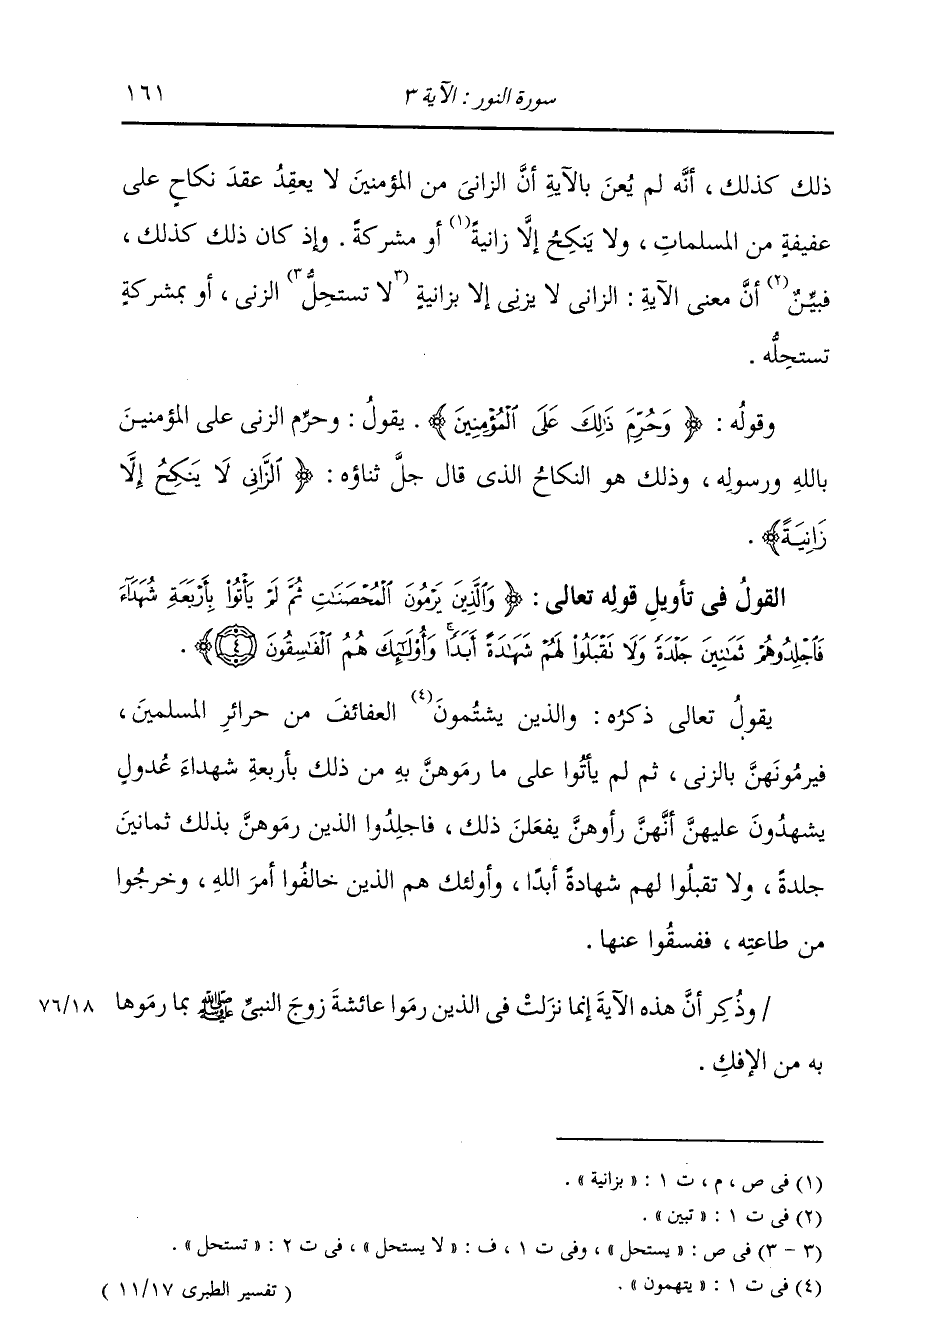 سورة النور : الآية ٣ ١٦١
ذلك كذلك ، أنَّه لم يُعنَ بالآيةِ أنَّ الزانىَ من المؤمنينَ لا يعقِدُ عقدَ نكاحٍ على
عفيفةٍ من المسلماتِ ، ولا يَنكِحُ إلَّا زانيةً(١) أو مشركةً . وإذ كان ذلك كذلك ،
فبيِّنٌ(٢) أنَّ معنى الآيةِ : الزانى لا يزنِى إلا بزانيةٍ (٣لا تستحِلُّ٣) الزنى ، أو بمشركةٍ
تستحِلُّه .
وقولُه : ﴿ وَحُرِّمَ ذَٰلِكَ عَلَى ٱلْمُؤْمِنِينَ ﴾ . يقولُ : وحرَّم الزنى على المؤمنينَ
باللهِ ورسولِه ، وذلك هو النكاحُ الذى قال جلَّ ثناؤه : ﴿ ٱلزَّانِى لَا يَنكِحُ إِلَّا
زَانِيَةً﴾ .
القولُ فى تأويلِ قولِه تعالى : ﴿ وَٱلَّذِينَ يَرْمُونَ ٱلْمُحْصَنَٰتِ ثُمَّ لَمْ يَأْتُوا۟ بِأَرْبَعَةِ شُهَدَآءَ
فَٱجْلِدُوهُمْ ثَمَٰنِينَ جَلْدَةً وَلَا تَقْبَلُوا۟ لَهُمْ شَهَٰدَةً أَبَدًا ۚ وَأُو۟لَٰٓئِكَ هُمُ ٱلْفَٰسِقُونَ ﴿٤﴾﴾ .
يقولُ تعالى ذكرُه : والذين يشتُمونَ(٤) العفائفَ من حرائرِ المسلمينَ ،
فيرمُونَهنَّ بالزنى ، ثم لم يأتُوا على ما رمَوهنَّ بهِ من ذلك بأربعةِ شهداءَ عُدولٍ
يشهدُونَ عليهنَّ أنَّهنَّ رأوهنَّ يفعَلنَ ذلك ، فاجلِدُوا الذين رمَوهنَّ بذلك ثمانينَ
جلدةً ، ولا تقبلُوا لهم شهادةً أبدًا ، وأولئك هم الذين خالفُوا أمرَ اللهِ ، وخرجُوا
من طاعتِه ، ففسقُوا عنها .
/ وذُكِر أنَّ هذه الآيةَ إنما نزَلتْ فى الذين رمَوا عائشةَ زوجَ النبىِّ ﷺ بما رمَوها ٧٦/١٨
به من الإفكِ .
(١) فى ص ، م ، ت ١ : « بزانية » .
(٢) فى ت ١ : « تبين » .
(٣ - ٣) فى ص : « يستحل » ، وفى ت ١ ، ف : « لا يستحل » ، فى ت ٢ : « تستحل » .
(٤) فى ت ١ : « يتهمون » .
( تفسير الطبرى ١١/١٧ )